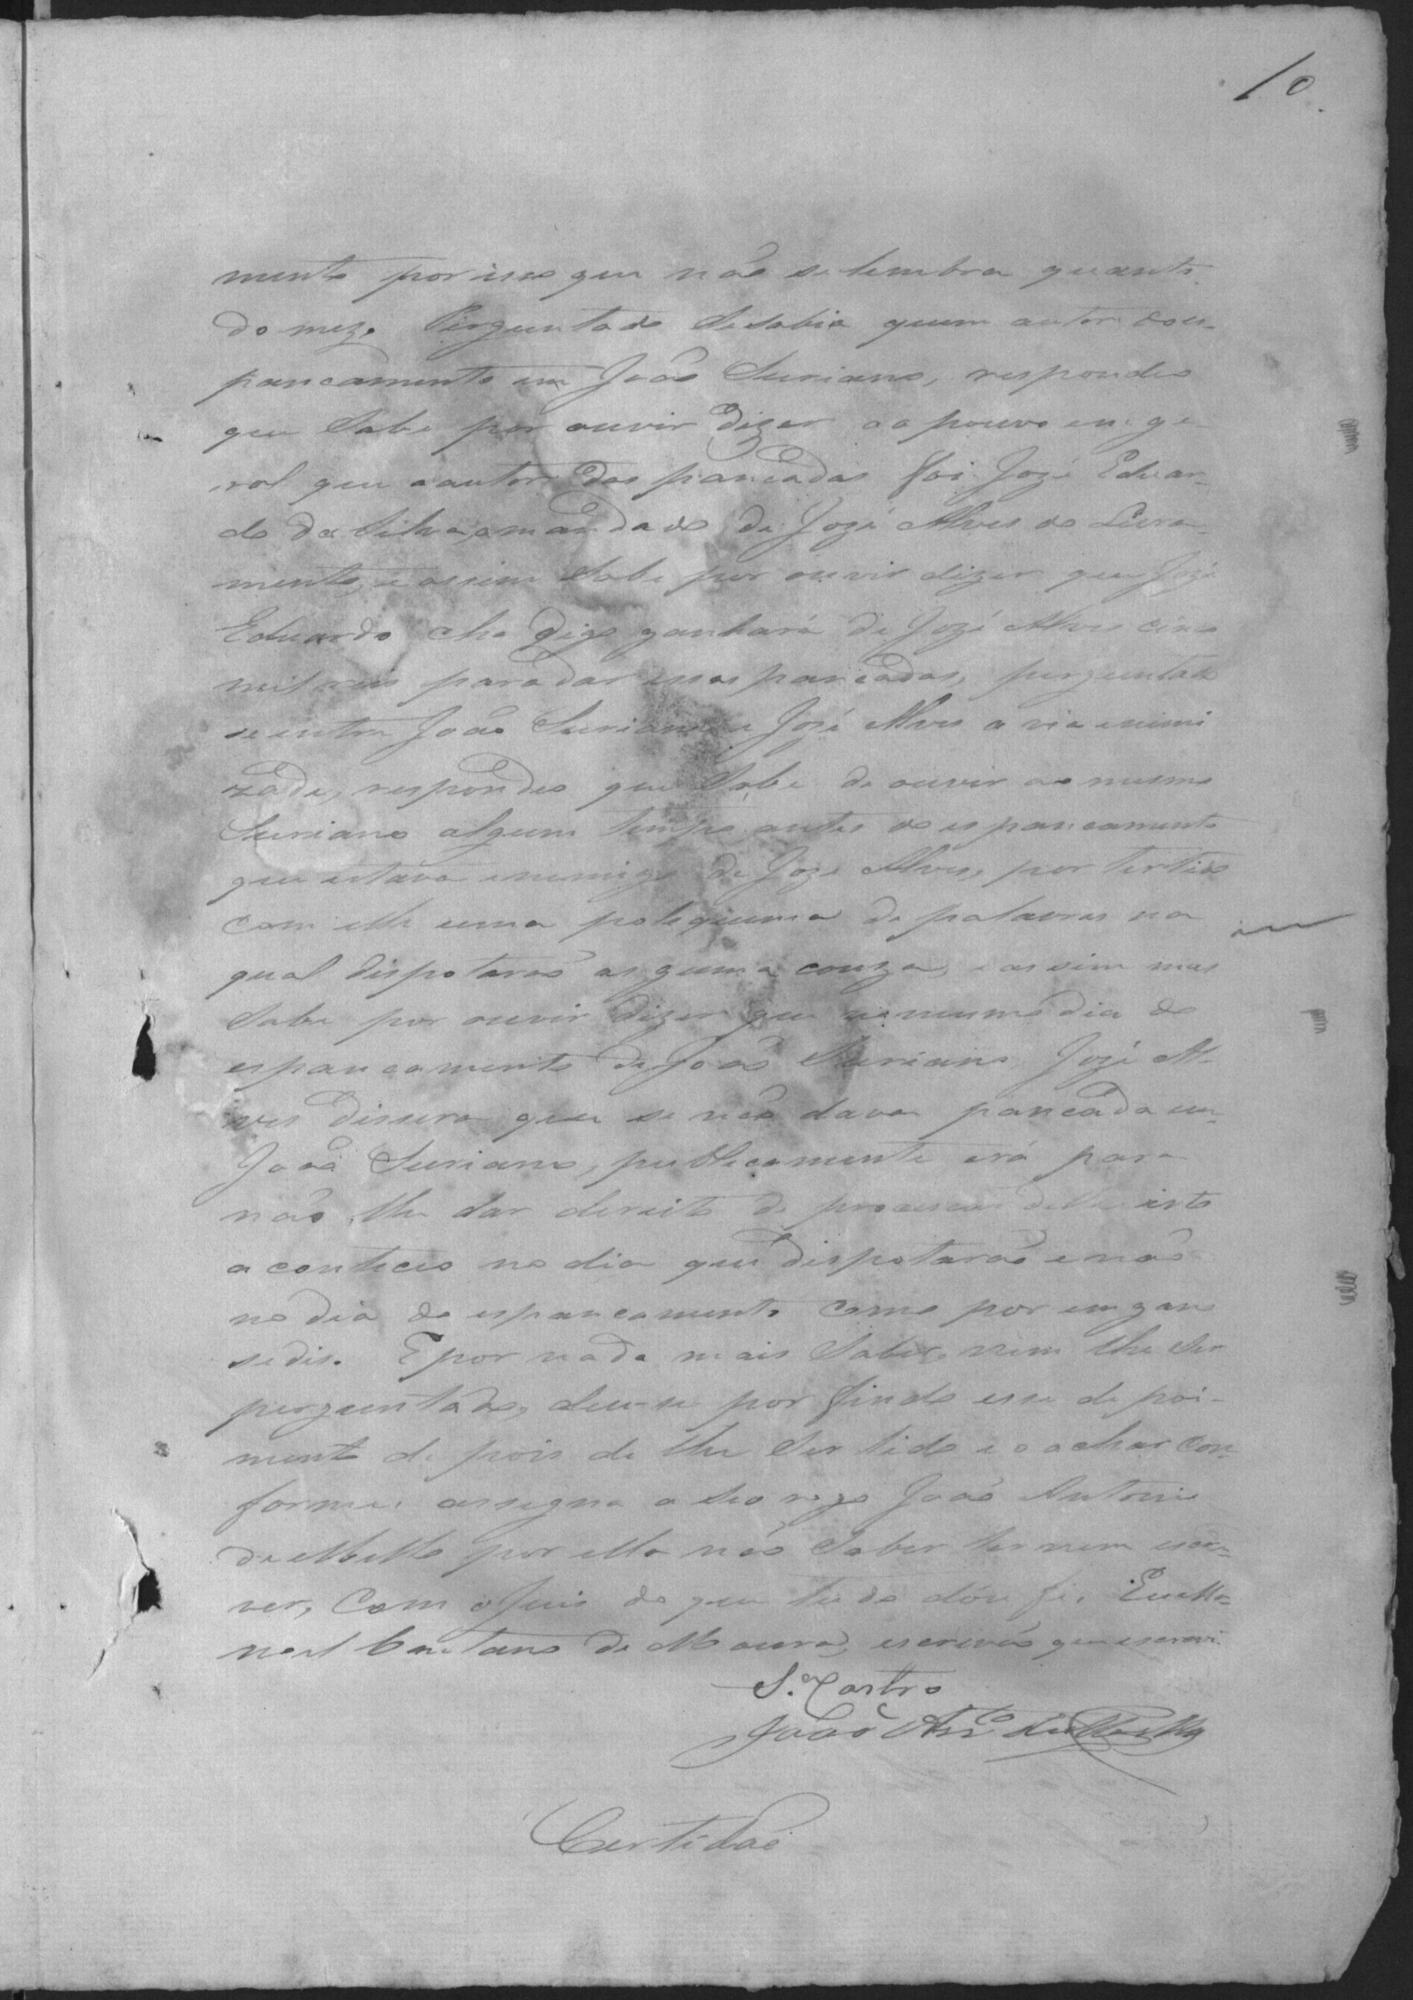 10
mento por isso que não se lembra quanto
do mez. Perguntado se sabia quem autor do es-
pancamento em João Suriano, respondeo
que sabe por ouvir dizer ao pouvo em ge-
ral que o autor das pancadas foi Jozé Eduar-
do da Silva a mandado de Jozé Alves do Livra-
mento, e assim sabe por ouvir dizer que Jozé
Eduardo digo ganhará de Jozé Alves cinco
mil reis para dar essas pancadas, perguntado
se entre João Suriano e Jozé Alves a via enimi
zade, respondeo que sabe de ouvir ao mesmo
Suriano algum tempo antes do espancamento
que estava enemigo de Joze Alves, por ter tido
com elle uma de palavras na
qual dispotarão arguma couza, e assim mas
sabe por ouvir dizer que no mesmo dia do
espancamento de João Suriano Jozé Al-
ves dissera que se não dava pancada em
João Suriano, publicamente erá para
não lhe dar dereito de processar isto
aconteceo no dia que dispotarão e não
no dia do espancamento como por engano
se dis. E por nada mais saber nem lhe ser
perguntado, deu-se por findo esse depoi-
mento depois de lhe ser lido e o achar con-
forme assigna a seo rogo João Antonio
de Mello por ella não saber ler nem escre-
ver, com o Juis do que tudo dou fé. Eu Ma-
noel Caetano de Moura, escrivão que escrevi
S. Castro
João Anto de Mello
Certidão